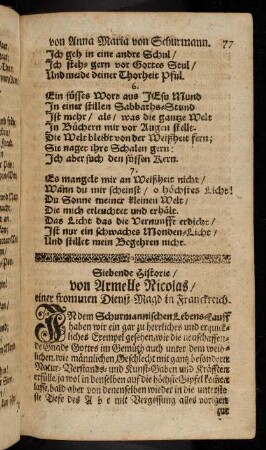 von Anna Maria von Schurmann. 77
Ich geh in eine andre Schul/
Ich steh gern vor Gottes Stul/
Und mude deiner Thorheit Pful.
6.
Ein süsses Wort aus JEsu Mund
In einer stillen Sabbaths-Stund
Ist mehr/ als/ was die gantze Welt
In Büchern mir vor Augen stellt.
Die Welt bleibt von der Weißheit fern;
Sie naget ihre Schalen gern:
Ich aber such den süssen Kern.
7.
Es mangelt mir an Weißheit nicht/
Wann du mir scheinst/ o höchstes Licht!
Du Sonne meiner kleinen Welt/
Die mich erleuchtet und erhält.
Das Licht das die Vernunfft erdicht/
Ist nur ein schwaches Monden-Licht/
Und stillet mein Begehren nicht.
Siebende Historie/
von Armelle Nicolas/
einer frommen Dienst Magd in Franckreich.
IN dem Schurmannischen Lebens-Lauff
haben wir ein gar zu herrliches und erquick-
liches Exempel gesehen/wie die neuschaffen-
de Gnade Gottes im Gemüth auch unter dem weib-
lichen/wie männlichen/Geschlecht mit gantz besondern
Natur- Verstands- und Kunst-Gaben und Kräfften
erfülle/ja wol in denselben auf die höchste Gipfel komme
lasse, bald aber von denenselben wieder in die unterste
ste Tiefe des A b c mit Vergessung alles vorigen
zur